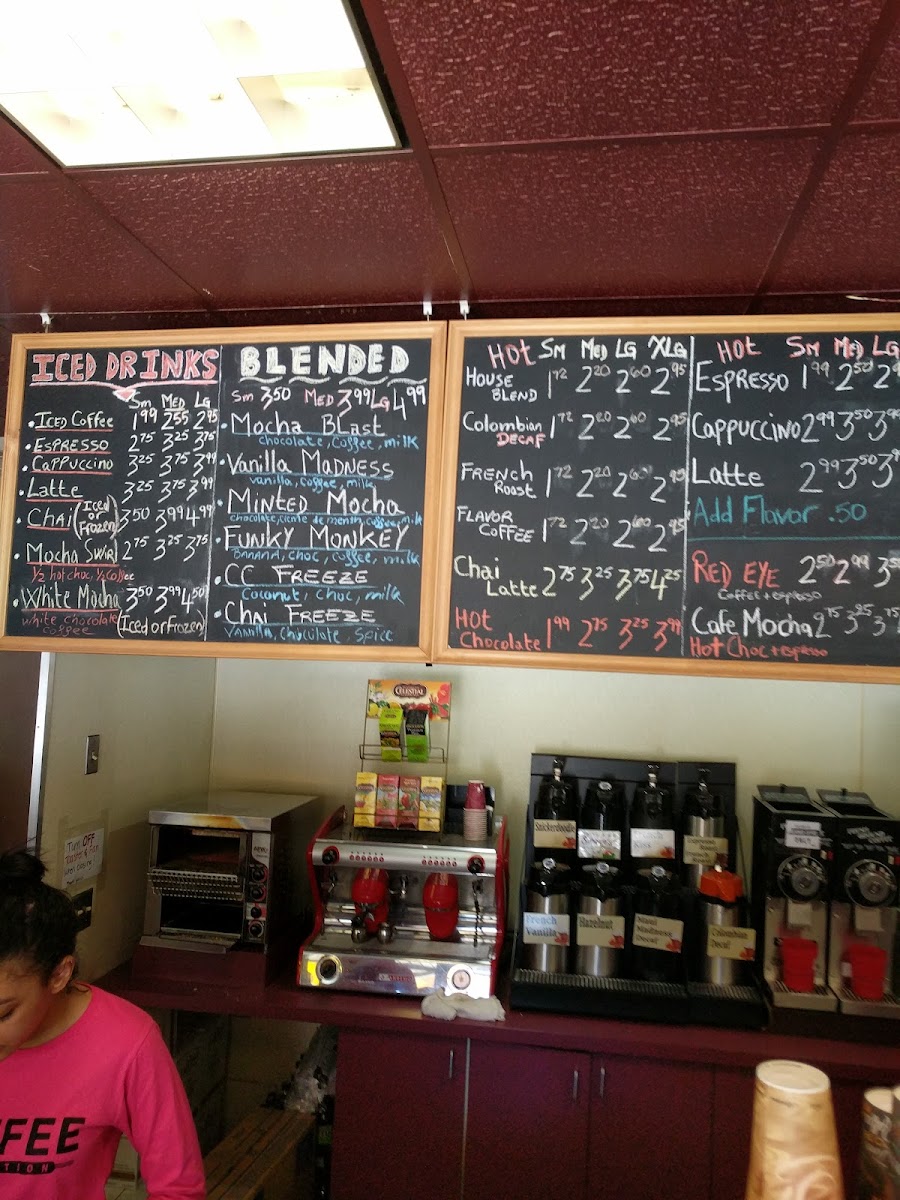 ICED DRINKS
Sm MED LG
• ICED COFFEE 1.99 2.55 2.95
• ESPRESSO 2.75 3.25 3.75
• CAPPUCCINO 3.25 3.75 3.99
• LATTE 3.25 3.75 3.99
• CHAI (Iced or Frozen) 3.50 3.99 4.99
• MOCHA SWIRL 2.75 3.25 3.75
1/2 hot choc, 1/2 coffee
• WHITE MOCHA 3.50 3.99 4.50
white chocolate coffee (Iced or Frozen)
BLENDED
Sm 3.50 MED 3.99 LG 4.99
• MOCHA BLAST
chocolate, coffee, milk
• VANILLA MADNESS
vanilla, coffee, milk
• MINTED MOCHA
chocolate, creme de menth, coffee, milk
• FUNKY MONKEY
BANANA, choc, coffee, milk
• CC FREEZE
Coconut, choc, milk
• CHAI FREEZE
Vanilla, chocolate, spice
HOT Sm MED LG XLG
HOUSE BLEND 1.72 2.20 2.60 2.95
Colombian DECAF 1.72 2.20 2.60 2.95
FRENCH Roast 1.72 2.20 2.60 2.95
FLAVOR COFFEE 1.72 2.20 2.60 2.95
Chai Latte 2.75 3.25 3.75 4.25
HOT Chocolate 1.99 2.75 3.25 3.99
HOT Sm MED LG
ESPRESSO 1.99 2.50
CAPPUCCINO 2.99 3.50
LATTE 2.99 3.50
Add Flavor .50
RED EYE 2.50 2.99
Coffee + espresso
CAFE MOCHA 2.75 3.25
HOT CHOC + espresso
CELESTIAL
Turn OFF
Snickerdoodle
French Vanilla
Hazelnut
Maui Madness Decaf
Colombian Decaf
FEE
TION